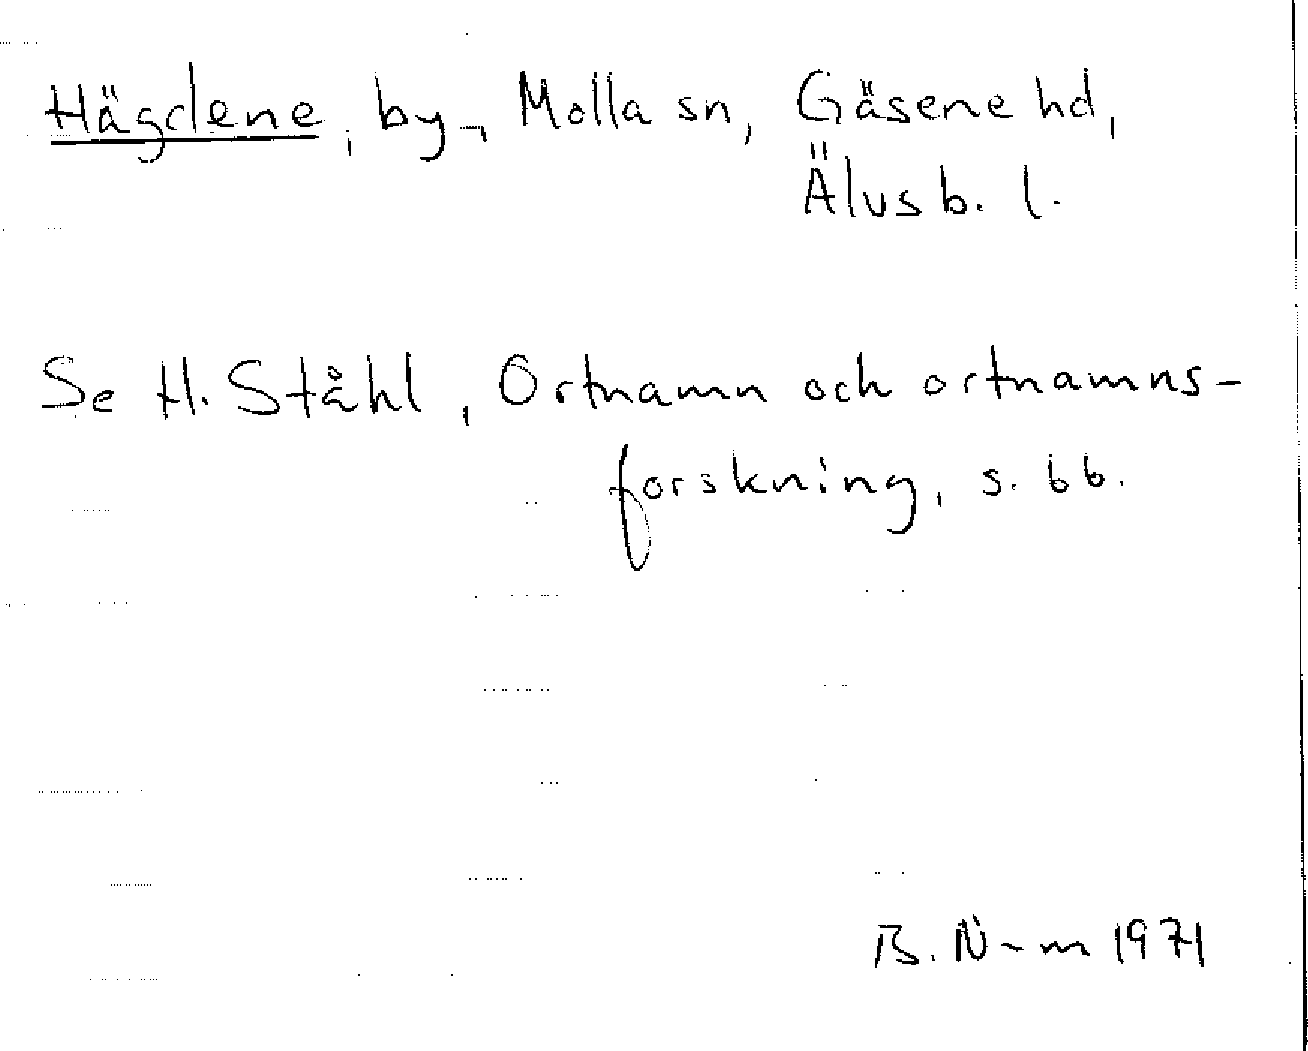 Hägdene, by, Molla sn, Gäsene hd,
Älvsb. l.
Se H. Ståhl, Ortnamn och ortnamns-
forskning, s. 66.
B. N-m 1971